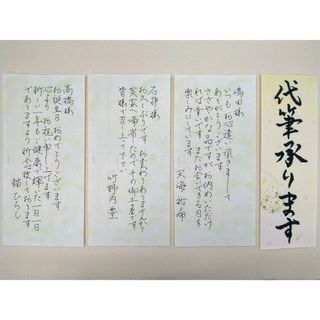 代筆承ります
満田様
いつもお心遣い頂きまして
ありがとうございます
ささやかな品ですがお納めいただけ
れば幸いです またお会できる日を
楽しみにしています
天海祐希
石井様
お久しぶりです お変わりありませんか?
実家へ帰省したのでその御土産です
皆様で召し上ってください
竹野内豊
高橋様
お誕生日 おめでとうございます
心よりお祝い申し上げます
新しい一年もご健康で輝いた一日一日
でありますようお祈り応援しております
猫ひろし